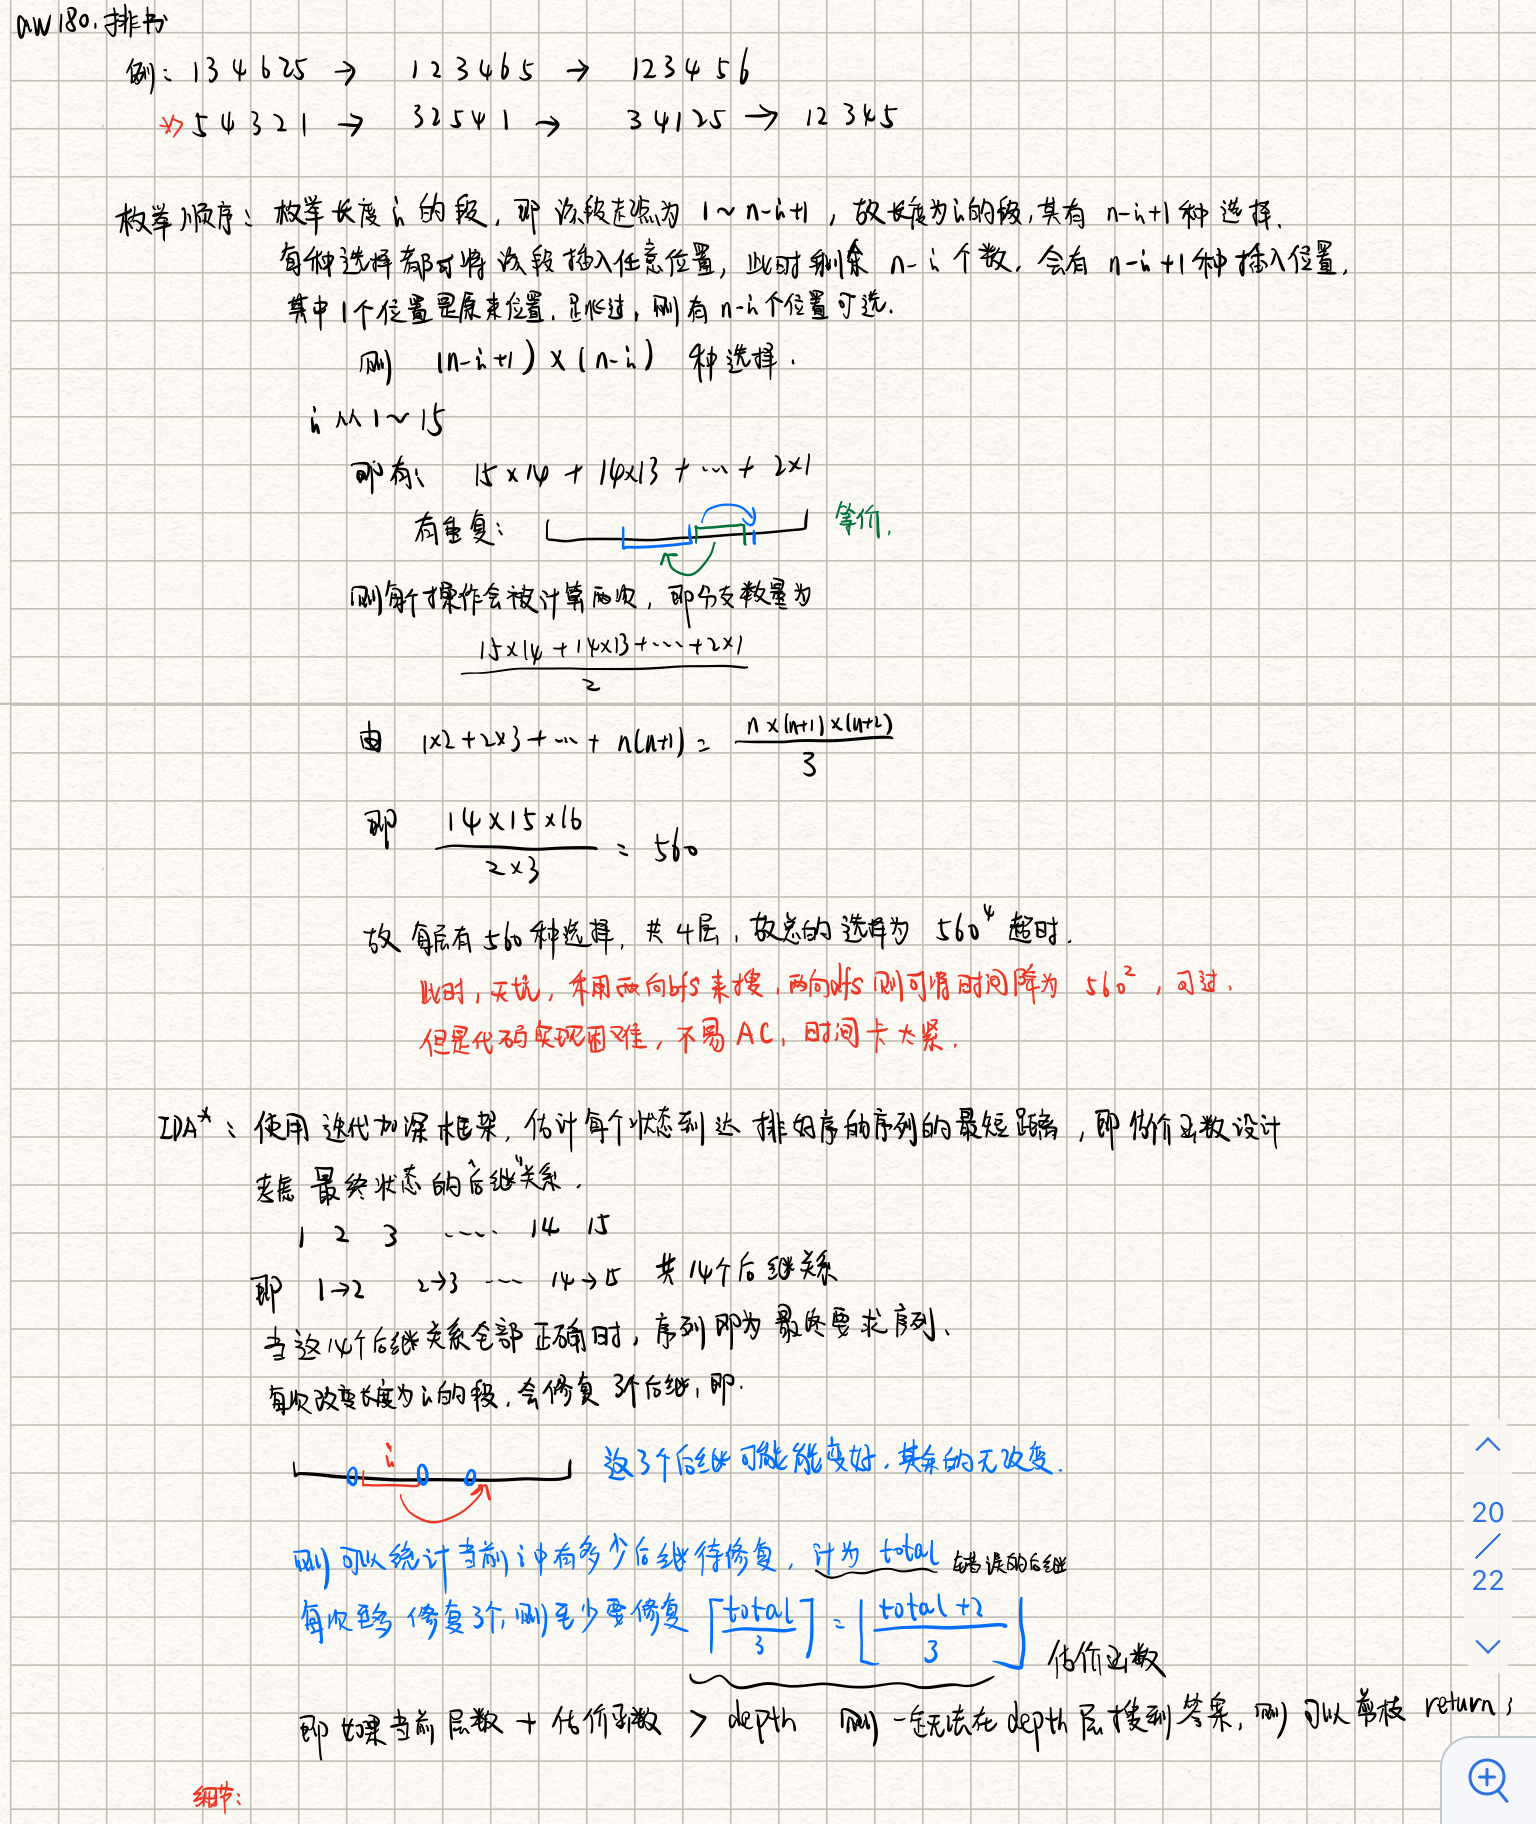 aw180.排书
例: 134625 → 123465 → 123456
54321 → 32541 → 34125 → 12345
枚举顺序: 枚举长度 i 的段, 即 该段起点为 1~n-i+1, 故长度为i的段,共有 n-i+1种 选择.
每种选择都可将 该段 插入任意位置, 此时剩余 n-i 个数, 会有 n-i+1种插入位置,
其中1个位置是原来位置, 跳过, 则有 n-i个位置可选.
则 (n-i+1)×(n-i) 种选择.
i 从 1~15
即有: 15×14 + 14×13 + … + 2×1
有重复: 等价.
则每个操作会被计算两次, 即分支数量为
15×14+14×13+…+2×1
2
由 1×2+2×3+…+ n(n+1) = n×(n+1)×(n+2)
3
即 14×15×16
2×3
= 560
故 每层有560种选择, 共4层, 故总的选择为 560⁴ 超时.
此时, 采用两向bfs来搜, 两向dfs则可将时间降为 560², 可过.
但是代码实现困难, 不易AC, 时间卡太紧.
IDA*: 使用迭代加深框架, 估计每个状态到达 排好序的序列的最短距离, 即估价函数设计
考虑 最终状态的"后继"关系.
1 2 3 …… 14 15
即 1→2 2→3 … 14→15 共14个后继关系
当这14个后继关系全部正确时, 序列即为最终要求序列.
每次改变长度为i的段, 会修复3个后继, 即.
i
这3个后继可能能变好, 其余的无改变.
则可以统计当前i中有多少后继待修复, 计为 total 错误的后继
每次至多修复3个, 则至少要修复 ⌈total/3⌉ = ⌊(total+2)/3⌋
估价函数
即如果当前层数 + 估价函数 > depth 则一定无法在depth层搜到答案, 则可以剪枝 return;
细节:
20
/
22